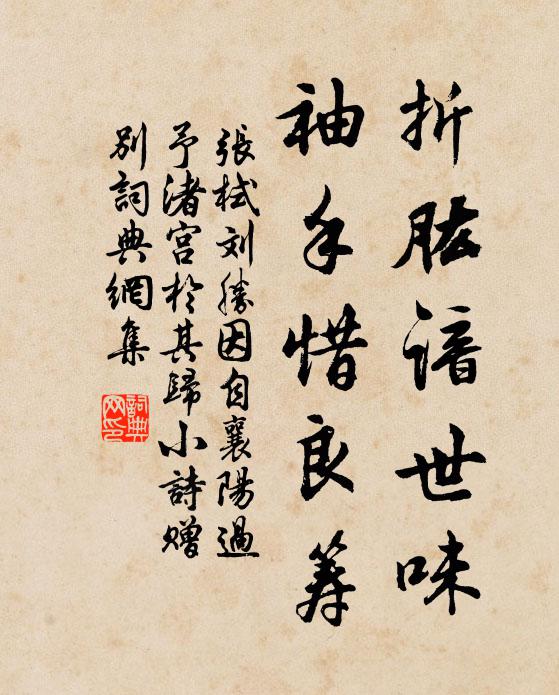 折肱諳世味
袖手惜良筹
張栻刘勝因自襄陽過
予渚宮於其歸小詩赠
别詞典網集
詞典
网印